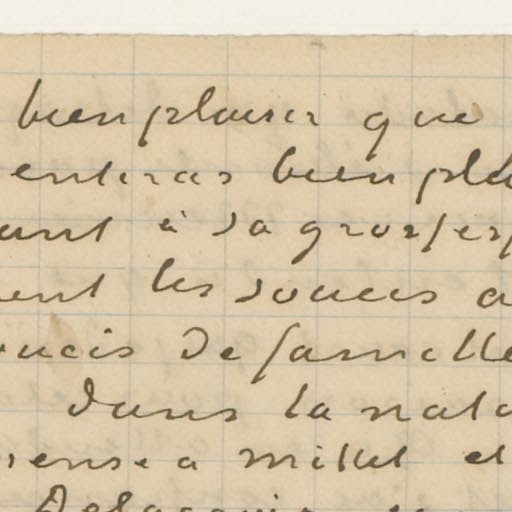 bien plaisir que
enteras bien plu
ant à sa grossess
ent les soucis a
oucis de famille
dans la natu
pense a Millet et
Delacroix